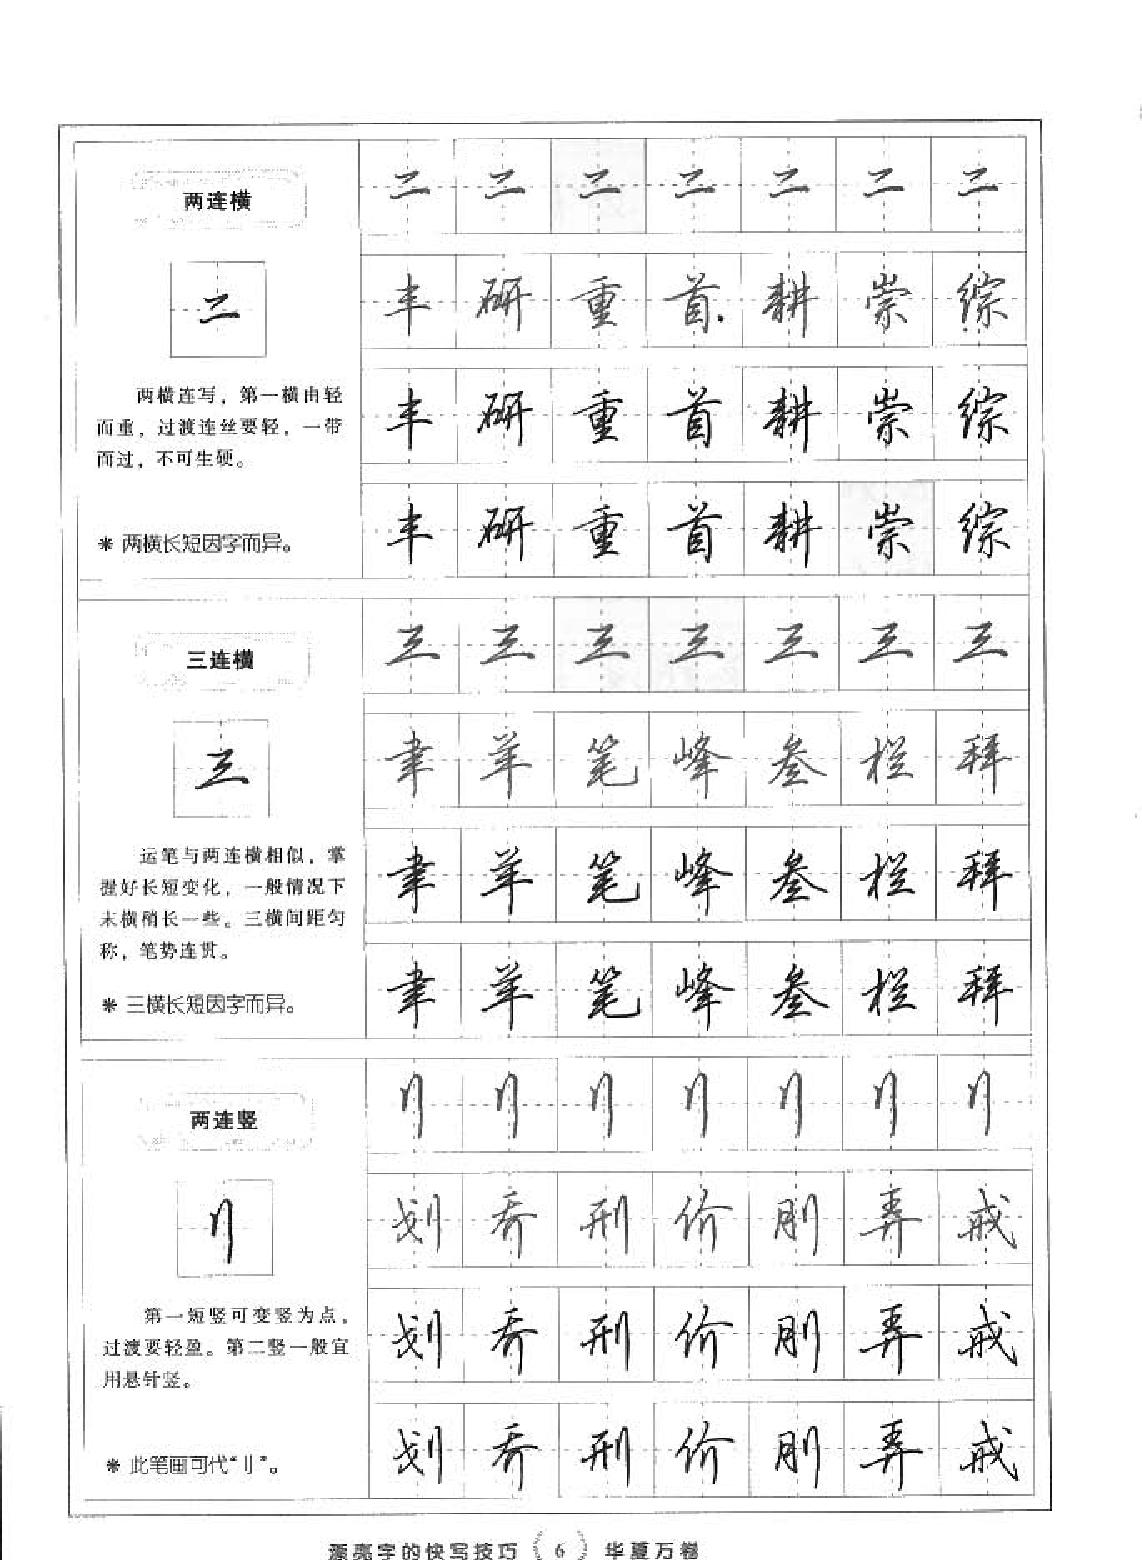 两连横
二 二 二 二 二 二 二
二
丰 研 重 首 耕 崇 综
两横连写，第一横由轻
而重，过渡连丝要轻，一带
而过，不可生硬。
丰 研 重 首 耕 崇 综
* 两横长短因字而异。
丰 研 重 首 耕 崇 综
三连横
三 三 三 三 三 三 三
三
聿 羊 笔 峰 叁 栏 拜
运笔与两连横相似，掌
握好长短变化，一般情况下
末横稍长一些。三横间距匀
称，笔势连贯。
聿 羊 笔 峰 叁 栏 拜
* 三横长短因字而异。
聿 羊 笔 峰 叁 栏 拜
两连竖
刂 刂 刂 刂 刂 刂 刂
刂
划 乔 刑 价 刚 弄 戒
第一短竖可变竖为点，
过渡要轻盈。第二竖一般宜
用悬针竖。
划 乔 刑 价 刚 弄 戒
* 此笔画可代“刂”。
划 乔 刑 价 刚 弄 戒
漂亮字的快写技巧 6 华夏万卷